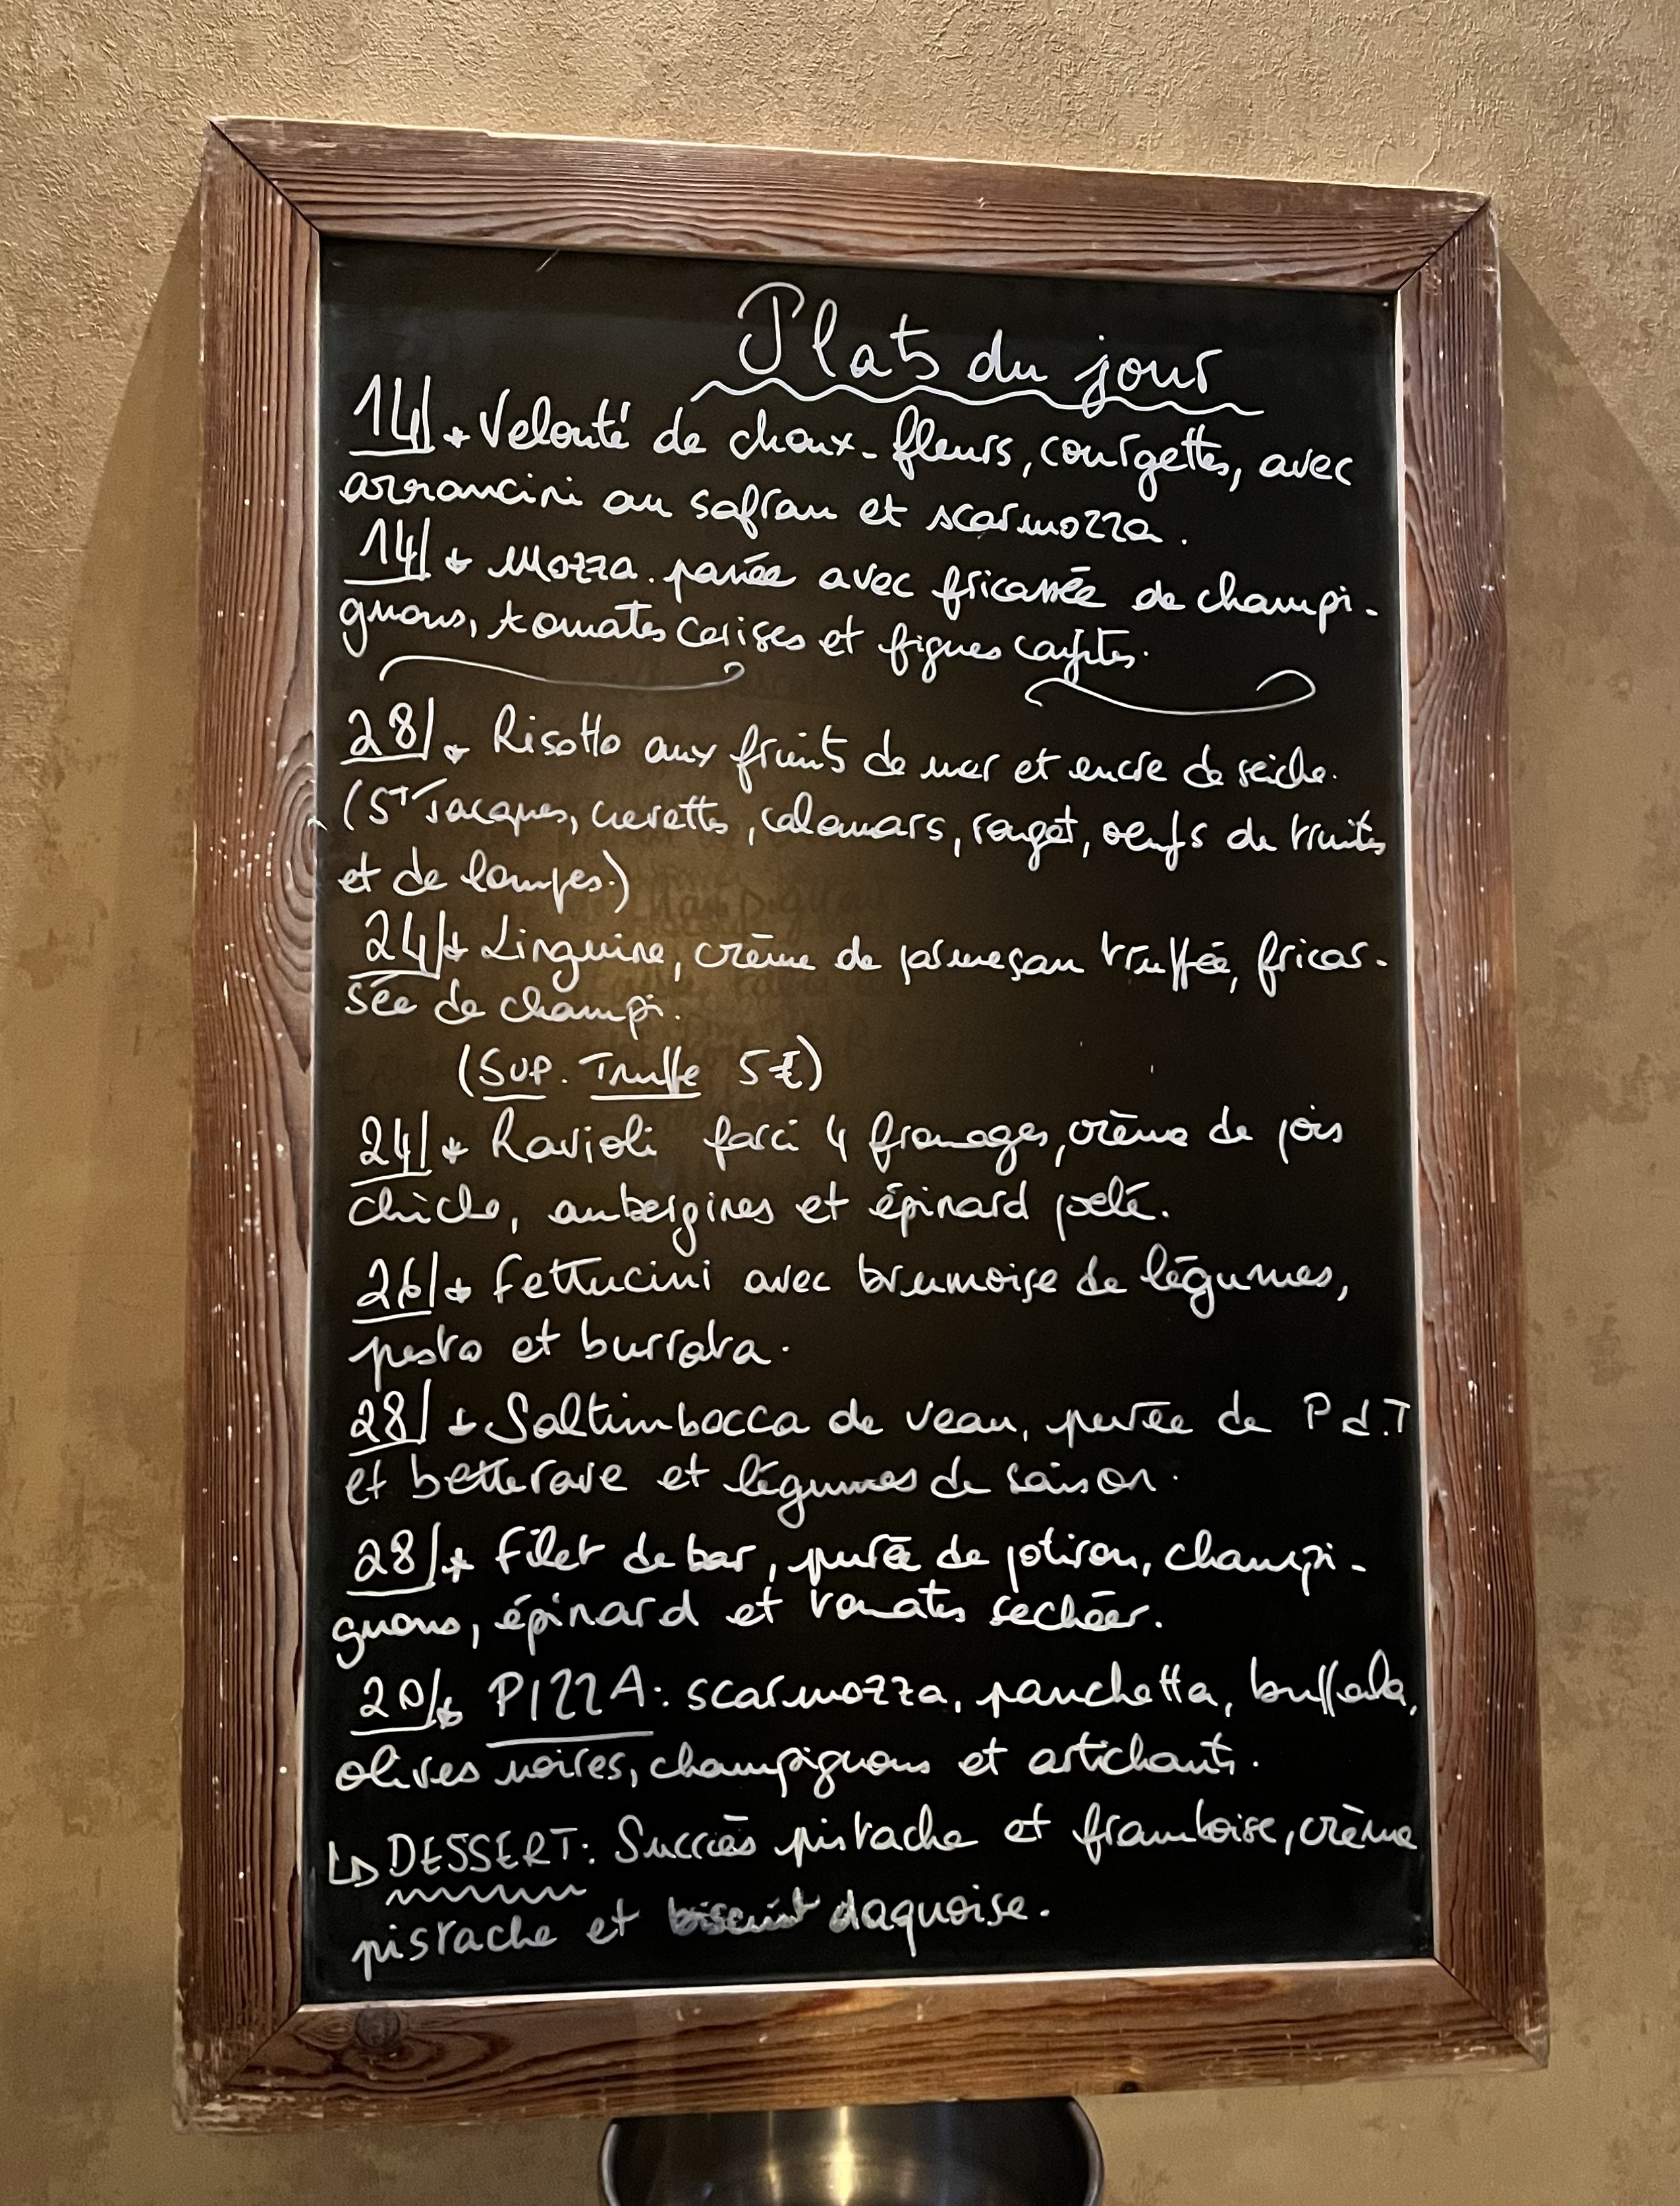 Plats du jour
14/ * Velouté de choux-fleurs, courgettes, avec
arrancini au safran et scarmozza.
14/ * Mozza. panée avec fricassée de champi-
gnons, tomates cerises et figues confites.
28/ * Risotto aux fruits de mer et encre de seiche.
(St Jacques, crevettes, calamars, rouget, oeufs de truites
et de lompes.)
24/ * Linguine, crème de parmesan truffée, fricas-
sée de champi.
(Sup. Truffe 5€)
24/ * Ravioli farci 4 fromages, crème de pois
chiche, aubergines et épinard poelé.
26/ * Fettucini avec brumoise de légumes,
pesto et burrata.
28/ * Saltimbocca de veau, purée de P d.T
et betterave et légumes de saison.
28/ * Filet de bar, purée de potiron, champi-
gnons, épinard et tomates sechées.
20/ * PIZZA: scarmozza, panchetta, buffala,
olives noires, champignons et artichauts.
↳ DESSERT: Succès pistache et framboise, crème
pistache et biscuit daquoise.